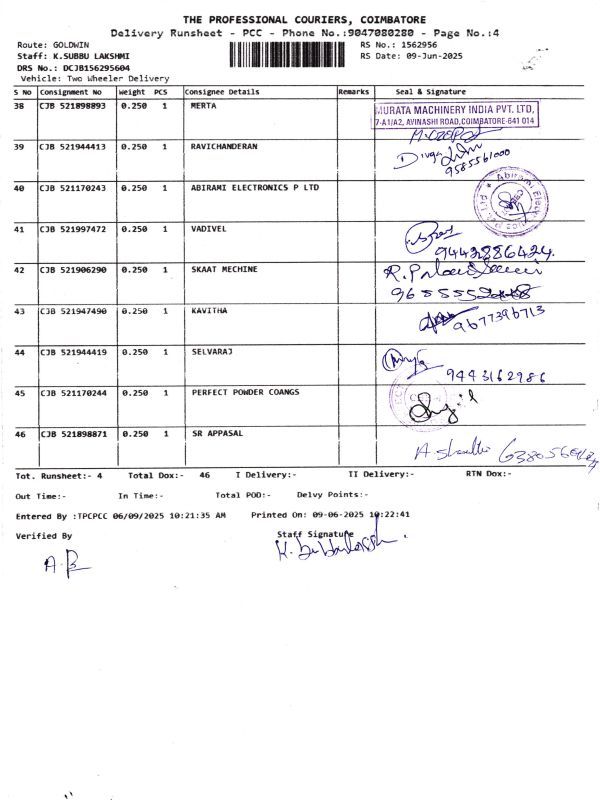 THE PROFESSIONAL COURIERS, COIMBATORE
Delivery Runsheet - PCC - Phone No.:9047080280 - Page No.:4
Route: GOLDWIN RS No.: 1562956
Staff: K.SUBBU LAKSHMI RS Date: 09-Jun-2025
DRS No.: DCJB156295604
Vehicle: Two Wheeler Delivery
S No Consignment No Weight PCS Consignee Details Remarks Seal & Signature
38 CJB 521898893 0.250 1 MERTA
MURATA MACHINERY INDIA PVT. LTD,
7-A1/A2, AVINASHI ROAD,COIMBATORE-641 014
39 CJB 521944413 0.250 1 RAVICHANDERAN
9585561000
40 CJB 521170243 0.250 1 ABIRAMI ELECTRONICS P LTD
Abirami Elec
41 CJB 521997472 0.250 1 VADIVEL
9442886424.
42 CJB 521906290 0.250 1 SKAAT MECHINE
43 CJB 521947490 0.250 1 KAVITHA
9677396713
44 CJB 521944419 0.250 1 SELVARAJ
9443162986
45 CJB 521170244 0.250 1 PERFECT POWDER COANGS
46 CJB 521898871 0.250 1 SR APPASAL
Tot. Runsheet:- 4 Total Dox:- 46 I Delivery:- II Delivery:- RTN Dox:-
Out Time:- In Time:- Total POD:- Delvy Points:-
Entered By :TPCPCC 06/09/2025 10:21:35 AM Printed On: 09-06-2025 10:22:41
Verified By Staff Signature